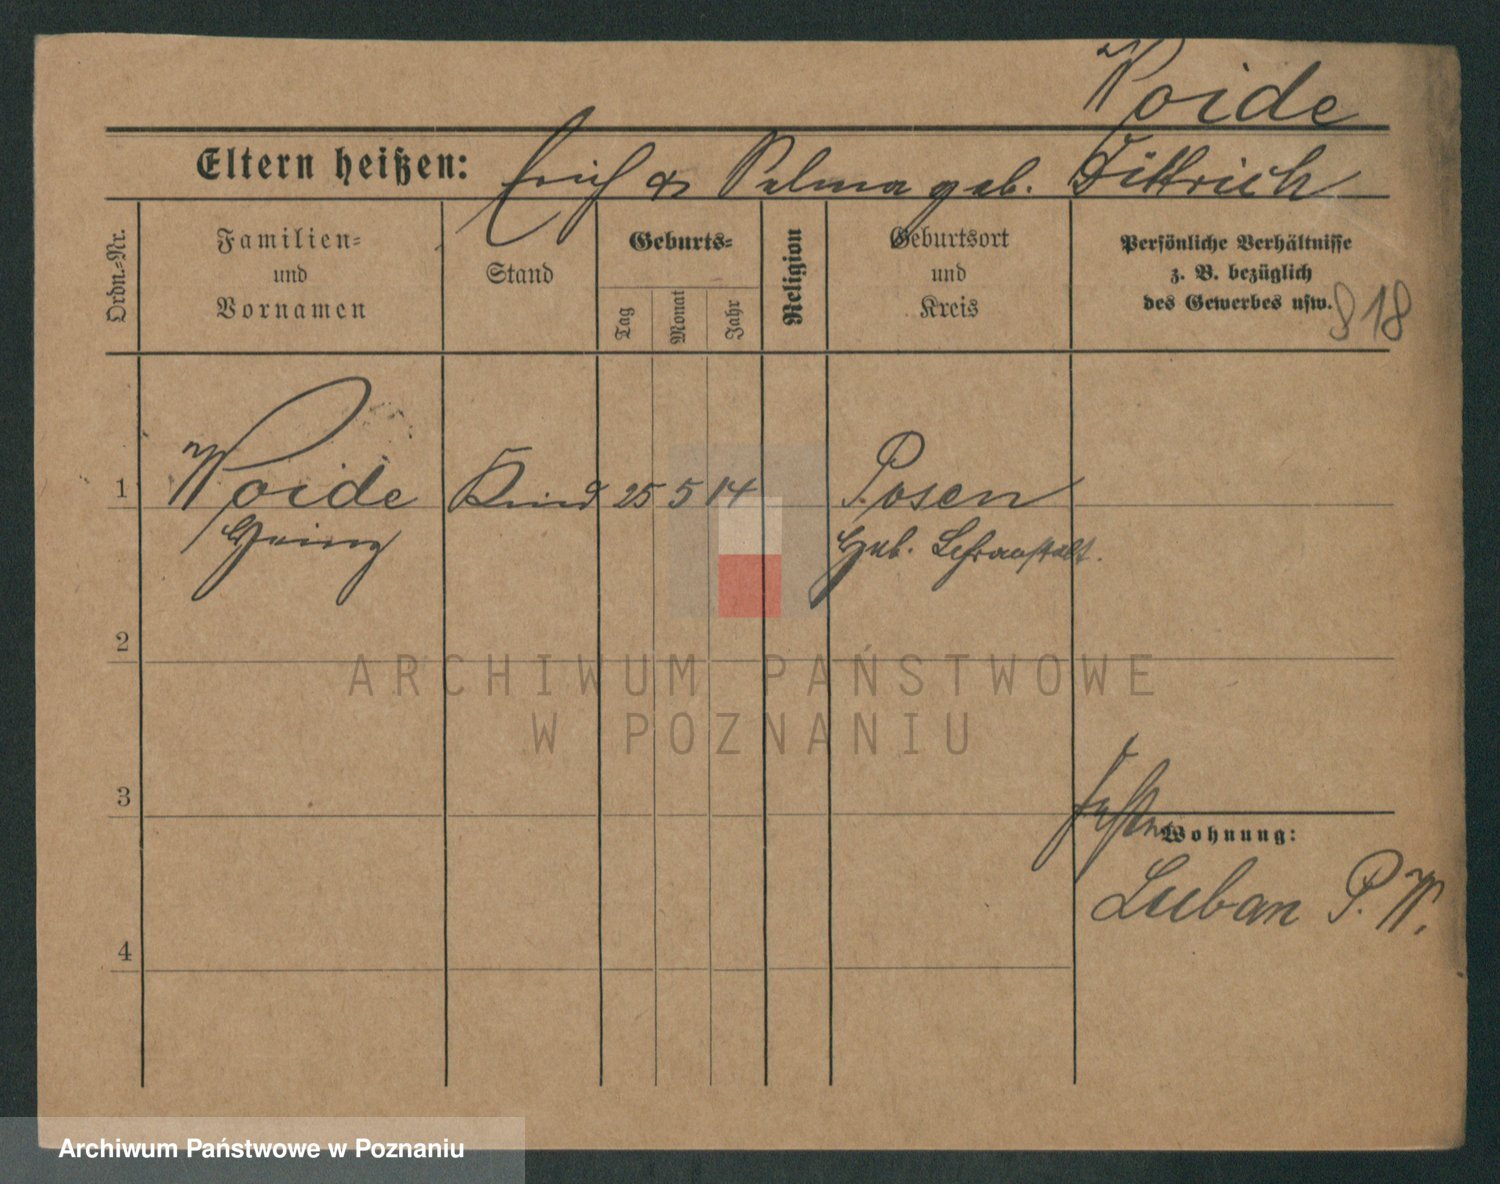 Woide
Eltern heißen: Erich & Selma geb. Dittrich
Ordn.=Nr.
Familien=
und
Vornamen
Stand
Geburts=
Tag
Monat
Jahr
Religion
Geburtsort
und
Kreis
Persönliche Verhältnisse
z. B. bezüglich
des Gewerbes usw.
818
1 Woide Kind 25 5 14 Posen
Heinz Heb. Lehranstalt.
2
3
Wohnung:
Luban P. W.
4
ARCHIWUM PAŃSTWOWE
W POZNANIU
Archiwum Państwowe w Poznaniu